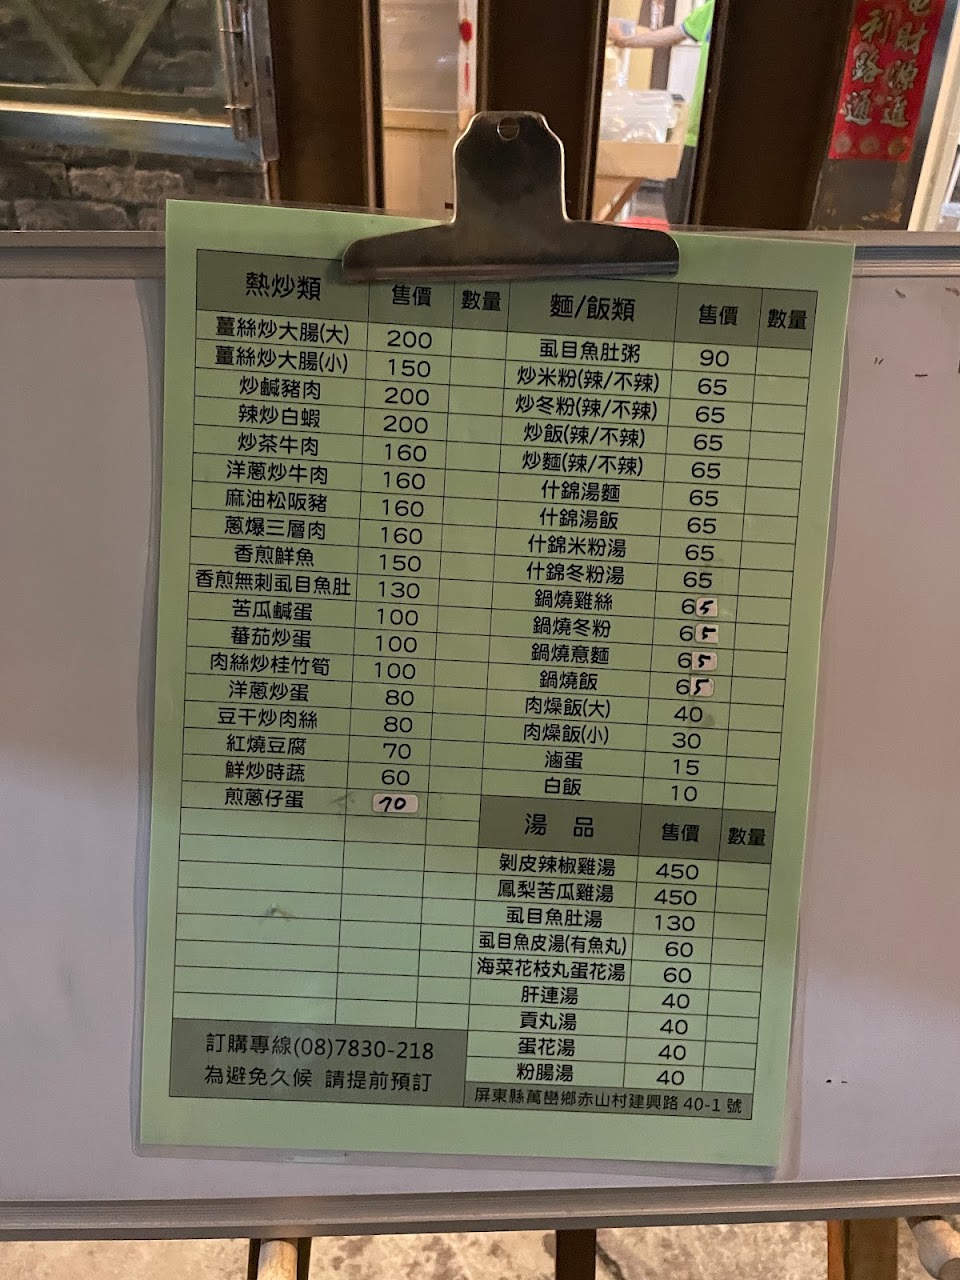 電財源進
利路通
熱炒類 售價 數量
薑絲炒大腸(大) 200
薑絲炒大腸(小) 150
炒鹹豬肉 200
辣炒白蝦 200
炒茶牛肉 160
洋蔥炒牛肉 160
麻油松阪豬 160
蔥爆三層肉 160
香煎鮮魚 150
香煎無刺虱目魚肚 130
苦瓜鹹蛋 100
蕃茄炒蛋 100
肉絲炒桂竹筍 100
洋蔥炒蛋 80
豆干炒肉絲 80
紅燒豆腐 70
鮮炒時蔬 60
煎蔥仔蛋 70
訂購專線(08)7830-218
為避免久候 請提前預訂
麵/飯類 售價 數量
虱目魚肚粥 90
炒米粉(辣/不辣) 65
炒冬粉(辣/不辣) 65
炒飯(辣/不辣) 65
炒麵(辣/不辣) 65
什錦湯麵 65
什錦湯飯 65
什錦米粉湯 65
什錦冬粉湯 65
鍋燒雞絲 65
鍋燒冬粉 65
鍋燒意麵 65
鍋燒飯 65
肉燥飯(大) 40
肉燥飯(小) 30
滷蛋 15
白飯 10
湯 品 售價 數量
剝皮辣椒雞湯 450
鳳梨苦瓜雞湯 450
虱目魚肚湯 130
虱目魚皮湯(有魚丸) 60
海菜花枝丸蛋花湯 60
肝連湯 40
貢丸湯 40
蛋花湯 40
粉腸湯 40
屏東縣萬巒鄉赤山村建興路 40-1 號